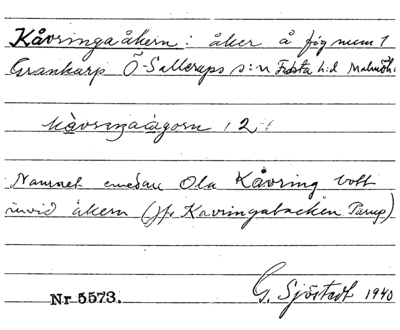 Kåvringaåkern: åker å fig num 1
Grankarp Ö-Sallerups s:n Frosta h:d Malmöh.
kåvringaågorn, 2
Namnet emedan Ola Kåvring bott
invid åkern (jfr Kavringabacken Parup)
Nr 5573. G. Sjöstedt 1940